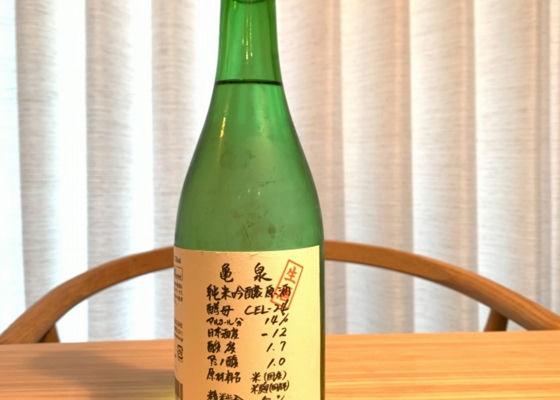 亀泉
生酒
純米吟醸原酒
酵母 CEL-24
アルコール分 14%
日本酒度 -12
酸度 1.7
アミノ酸 1.0
原材料名 米(国産)
米麹(国産米)
精米歩合